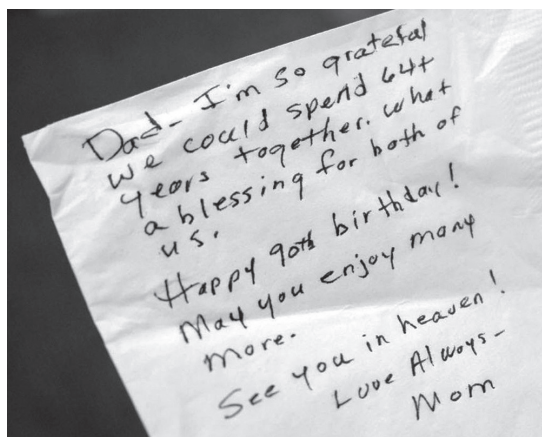 Dad- I'm so grateful
we could spend 64+
years together. What
a blessing for both of
us.
Happy 90th birthday!
May you enjoy many
more.
See you in heaven!
Love Always-
Mom